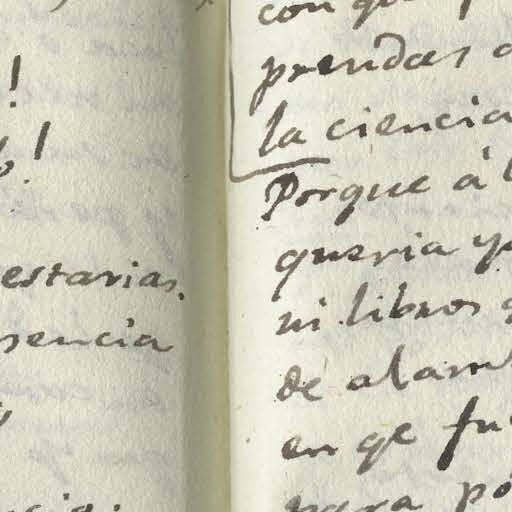 !
!
estarias.
sencia
con
prendas
la ciencia
Porque á
queria
ni libros
de alam
en qe fu
para